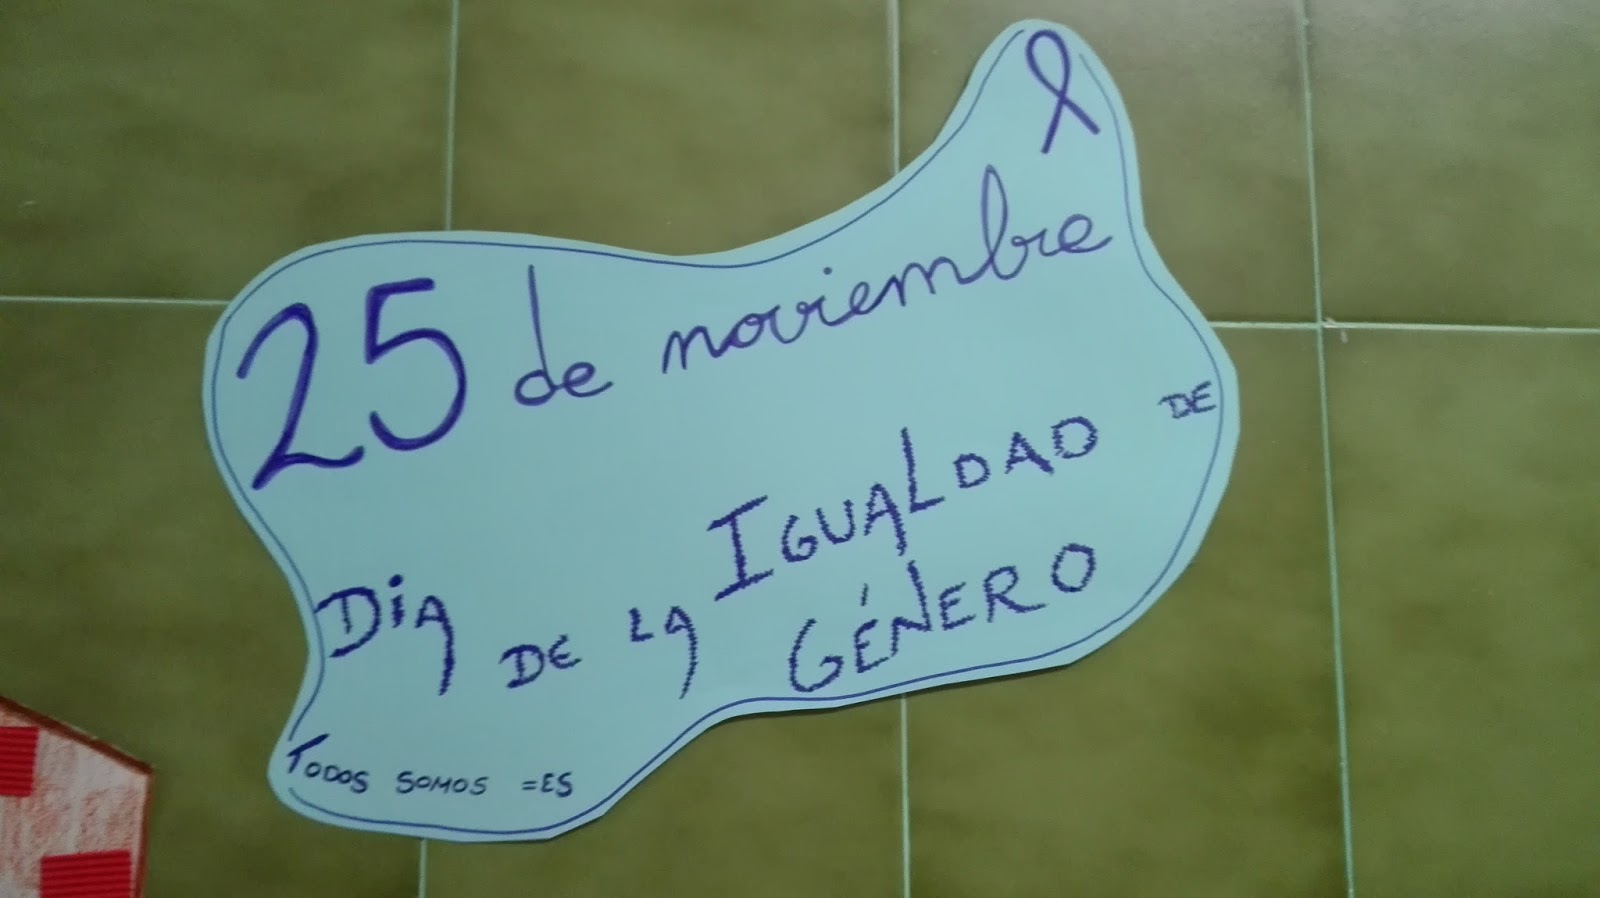 25 de noviembre
DiA DE LA IGUALDAD DE
GÉNERO
TODOS SOMOS =ES